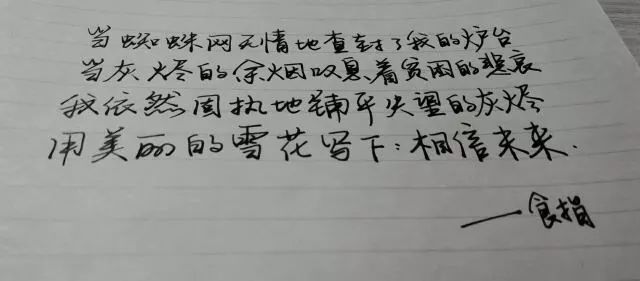 当蜘蛛网无情地查封了我的炉台
当灰烬的余烟叹息着贫困的悲哀
我依然固执地铺平失望的灰烬
用美丽的雪花写下:相信未来.
——食指